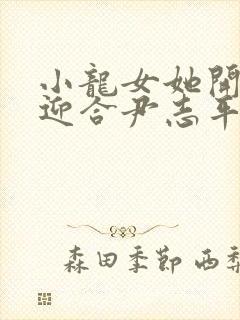 小龍女她開
迎合尹志平
森田季節 西梨